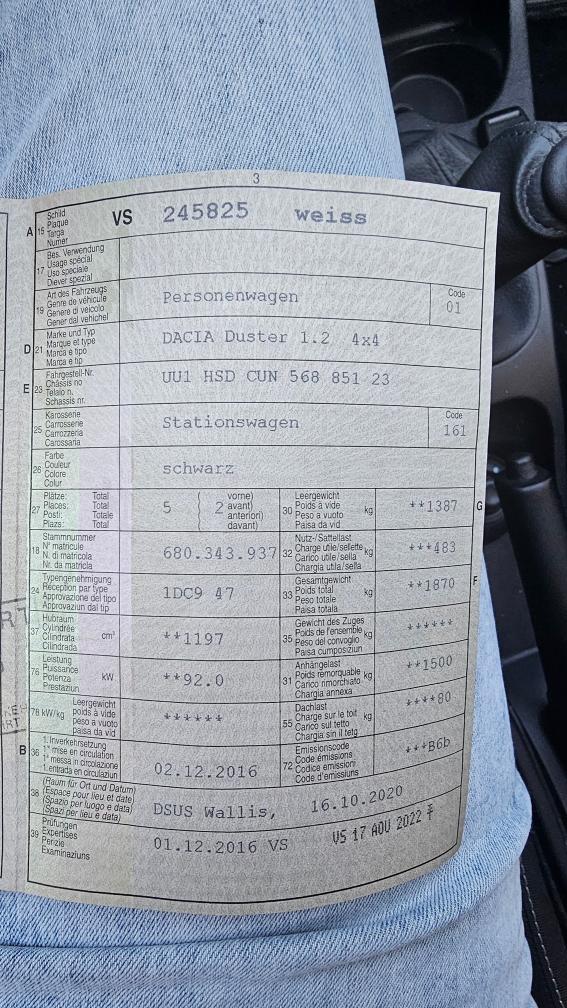 3
A 15 Schild VS 245825 weiss
Plaque
Targa
Numer
17 Bes. Verwendung
Usage spécial
Uso speciale
Diever spezial
19 Art des Fahrzeugs Personenwagen Code
Genre de véhicule 01
Genere di veicolo
Gener dal vehichel
D 21 Marke und Typ DACIA Duster 1.2 4x4
Marque et type
Marca e tipo
Marca e tip
E 23 Fahrgestell-Nr. UU1 HSD CUN 568 851 23
Châssis no
Telaio n.
Schassis nr.
25 Karosserie Stationswagen Code
Carrosserie 161
Carrozzeria
Carossaria
26 Farbe schwarz
Couleur
Colore
Colur
27 Plätze: Total 5 ( 2 vorne)
Places: Total avant)
Posti: Totale anteriori)
Plazs: Total davant)
30 Leergewicht kg **1387 G
Poids à vide
Peso a vuoto
Paisa da vid
18 Stammnummer 680.343.937
N° matricule
N. di matricola
Nr. da matricla
32 Nutz-/Sattellast kg ***483
Charge utile/sellette
Carico utile/sella
Chargia utila/sella
24 Typengenehmigung 1DC9 47
Réception par type
Approvazione del tipo
Approvaziun dal tip
33 Gesamtgewicht kg **1870 F
Poids total
Peso totale
Paisa totala
37 Hubraum cm³ **1197
Cylindrée
Cilindrata
Cilindrada
35 Gewicht des Zuges kg ******
Poids de l'ensemble
Peso del convoglio
Paisa cumposiziun
76 Leistung kW **92.0
Puissance
Potenza
Prestaziun
31 Anhängelast kg **1500
Poids remorquable
Carico rimorchiato
Chargia annexa
78 kW/kg Leergewicht ******
poids à vide
peso a vuoto
paisa da vid
55 Dachlast kg ****80
Charge sur le toit
Carico sul tetto
Chargia sin il tetg
B 36 1. Inverkehrsetzung 02.12.2016
1re mise en circulation
1a messa in circolazione
1. entrada en circulaziun
72 Emissionscode ***B6b
Code émissions
Codice emissioni
Code d'emissiuns
38 (Raum für Ort und Datum) DSUS Wallis, 16.10.2020
(Espace pour lieu et date)
(Spazio per luogo e data)
(Spazi per lieu e data)
39 Prüfungen 01.12.2016 VS VS 17 AOU 2022
Expertises
Perizie
Examinaziuns